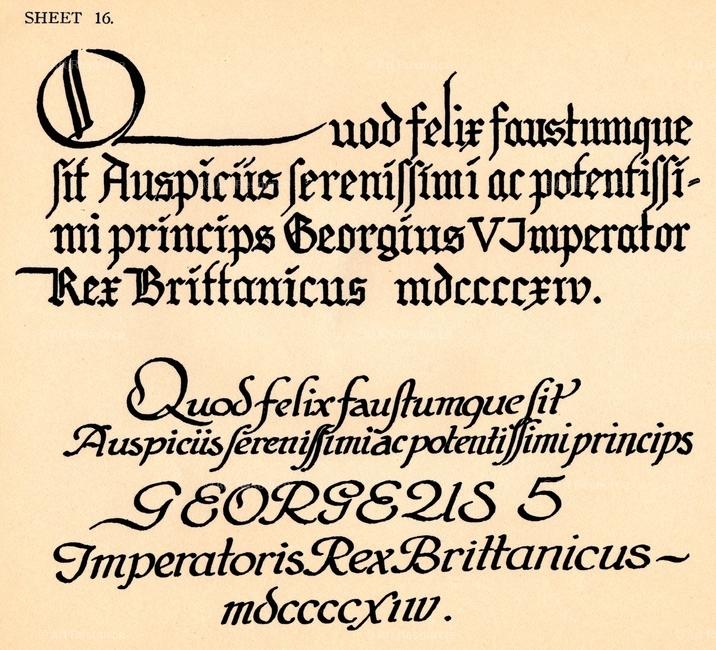 SHEET 16.
Quod felix faustumque
sit Auspiciis serenissimi ac potentissi-
mi princips Georgius V Imperator
Rex Brittanicus mdccccxiv.
Quod felix faustumque sit
Auspiciis serenissimi ac potentissimi princips
GEORGEUS 5
Imperatoris Rex Brittanicus ~
mdccccxiiv.